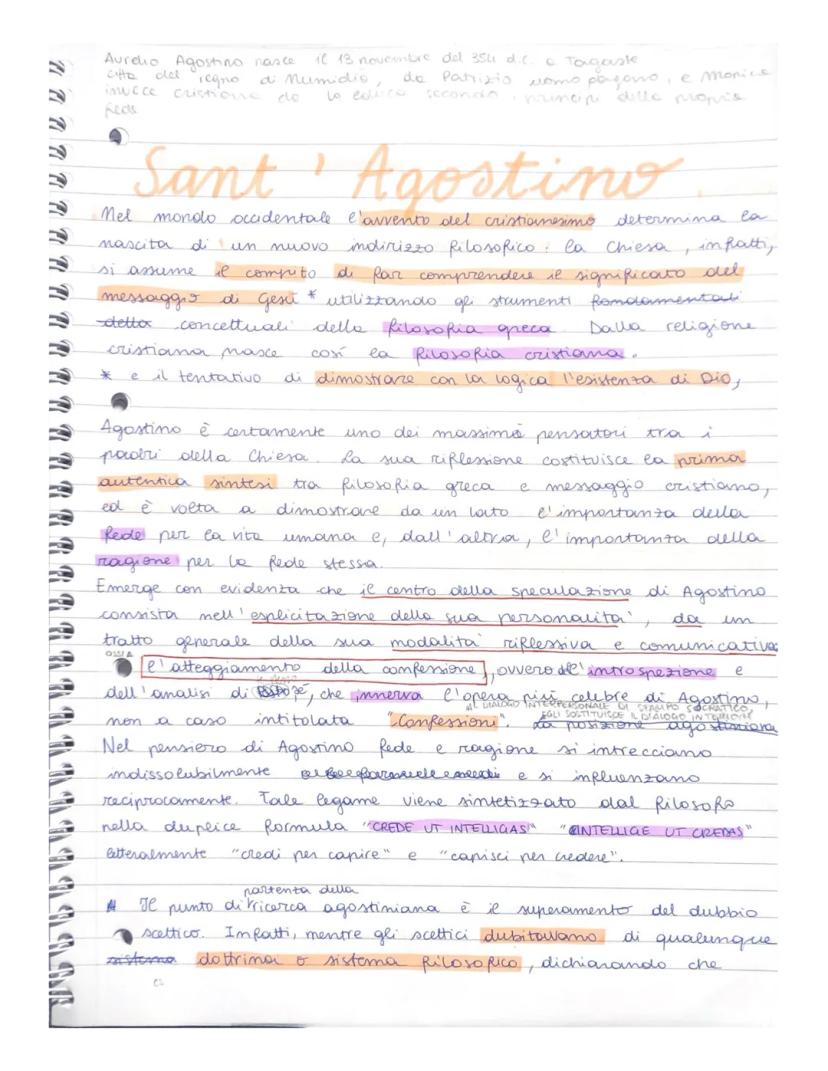 Aurelio Agostino nasce il 13 novembre del 354 d.C. a Tagaste
città del regno di Numidia, da Patrizio uomo pagano, e Monica
invece cristiana che lo educa secondo i principi della propria
fede
Sant'Agostino.
Nel mondo occidentale l'avvento del cristianesimo determina la
nascita di un nuovo indirizzo filosofico: la Chiesa, infatti,
si assume il compito di far comprendere il significato del
messaggio di Gesù * utilizzando gli strumenti fondamentali
della concettuali della filosofia greca. Dalla religione
cristiana nasce così la filosofia cristiana.
* e il tentativo di dimostrare con la logica l'esistenza di Dio,
Agostino è certamente uno dei massimi pensatori tra i
padri della Chiesa. La sua riflessione costituisce la prima
autentica sintesi tra filosofia greca e messaggio cristiano,
ed è volta a dimostrare da un lato l'importanza della
fede per la vita umana e, dall'altra, l'importanza della
ragione per la fede stessa.
Emerge con evidenza che il centro della speculazione di Agostino
consista nell'esplicitazione della sua personalità, da un
tratto generale della sua modalità riflessiva e comunicativa
OSSIA
l'atteggiamento della confessione, ovvero dell'introspezione e
dell'analisi di sé, che innerva l'opera più celebre di Agostino,
AL DIALOGO INTERPERSONALE DI STAMPO SOCRATICO,
EGLI SOSTITUISCE IL DIALOGO INTERIORE
non a caso intitolata "Confessioni". La posizione agostiniana
Nel pensiero di Agostino fede e ragione si intrecciano
indissolubilmente e si influenzano
reciprocamente. Tale legame viene sintetizzato dal filosofo
nella duplice formula "CREDE UT INTELLIGAS" "INTELLIGE UT CREDAS"
letteralmente "credi per capire" e "capisci per credere".
partenza della
Il punto di ricerca agostiniana è il superamento del dubbio
scettico. Infatti, mentre gli scettici dubitavano di qualunque
sistema dottrina o sistema filosofico, dichiarando che